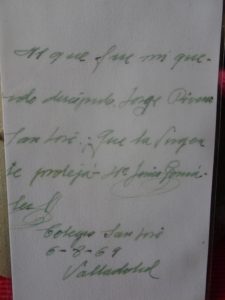 Al que fue mi que-
rido discípulo Jorge
San José. ¡Que la Virgen
te proteja
Colegio San José
6-8-69
Valladolid